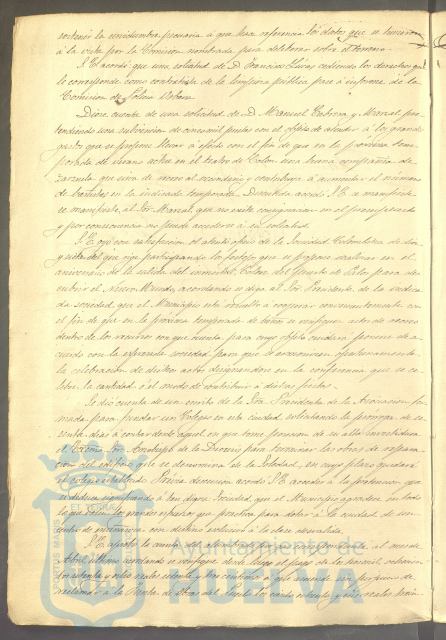 sostener la servidumbre pecuaria a que hace referencia los datos que se tuvieron
á la vista por la Comision nombrada para deliberar sobre el terreno.
S.E. acordó que una solicitud de D. Francisco cediendo los derechos que
le corresponde como contratista de la limpieza pública pase á informe de la
Comision de Policia Urbana.
Diose cuenta de una solicitud de D. Manuel Cabrera y Marzal pre-
tendiendo una subvencion de pesetas con el objeto de atender á los grandes
gastos que se propone llevar á efecto con el fin de que en la próxima tem-
porada de verano actue en el teatro de Colon una buena compañia de
zarzuela que sirva de recreo al vecindario y contribuya á aumentar el número
de bañistas en la indicada temporada. Discutida acordó S.E. se manifieste
al Sor. Marzal, que no existe consignacion en el presupuesto
y por consecuencia no puede accederse á su solicitud.
S.E. oyó con satisfaccion el atento oficio de la Sociedad Colombina de
participando los festejos que se propone realizar en el
aniversario de la salida del inmortal Colon del Puerto de Palos para des-
cubrir el Nuevo Mundo, acordando se diga al Sor. Presidente de la indica-
da sociedad, que el Municipio está resuelto á cooperar convenientemente con
el fin de que en la próxima temporada de baños se verifiquen actos de recreo
dentro de los recursos con que cuenta, para cuyo objeto cuidará ponerse de a-
cuerdo con la expresada sociedad para que se armonicen oportunamente
la celebracion de dichos actos designandose en la conferencia que se ce-
lebre, la cantidad ó el modo de contribuir á dichas fiestas.
Se dió cuenta de un escrito de la Sra. Presidenta de la Asociacion for-
mada para fundar un Colegio en esta ciudad, solicitando la prorroga de se-
senta dias á contar desde aquel en que tome posesion de su alta investidura
el Excmo. Sor. Arzobispo de la Diocesis para terminar las obras de repara-
cion del edificio que se denomina de la Soledad, en cuyo plazo quedará
el colegio establecido. Previa discusion acordó S.E. acceder á la pretension, que
se indica significando á tan digna Sociedad, que el Municipio agradece en todo
lo que valen los grandes esfuerzos que practica para dotar á la ciudad de un
centro de enseñanza con destino exclusivo á la clase
S.E. aprobó la cuenta del alumbrado por gas correspondiente al mes de
Abril último acordando se verifique desde luego el pago de las pesetas
ochenta y ocho reales setenta y tres centimos á que asciende sin perjuicio de
reclamar á la Junta de Obras del Puerto los ciento ochenta y seis reales
Ayuntamiento de
HUELVA